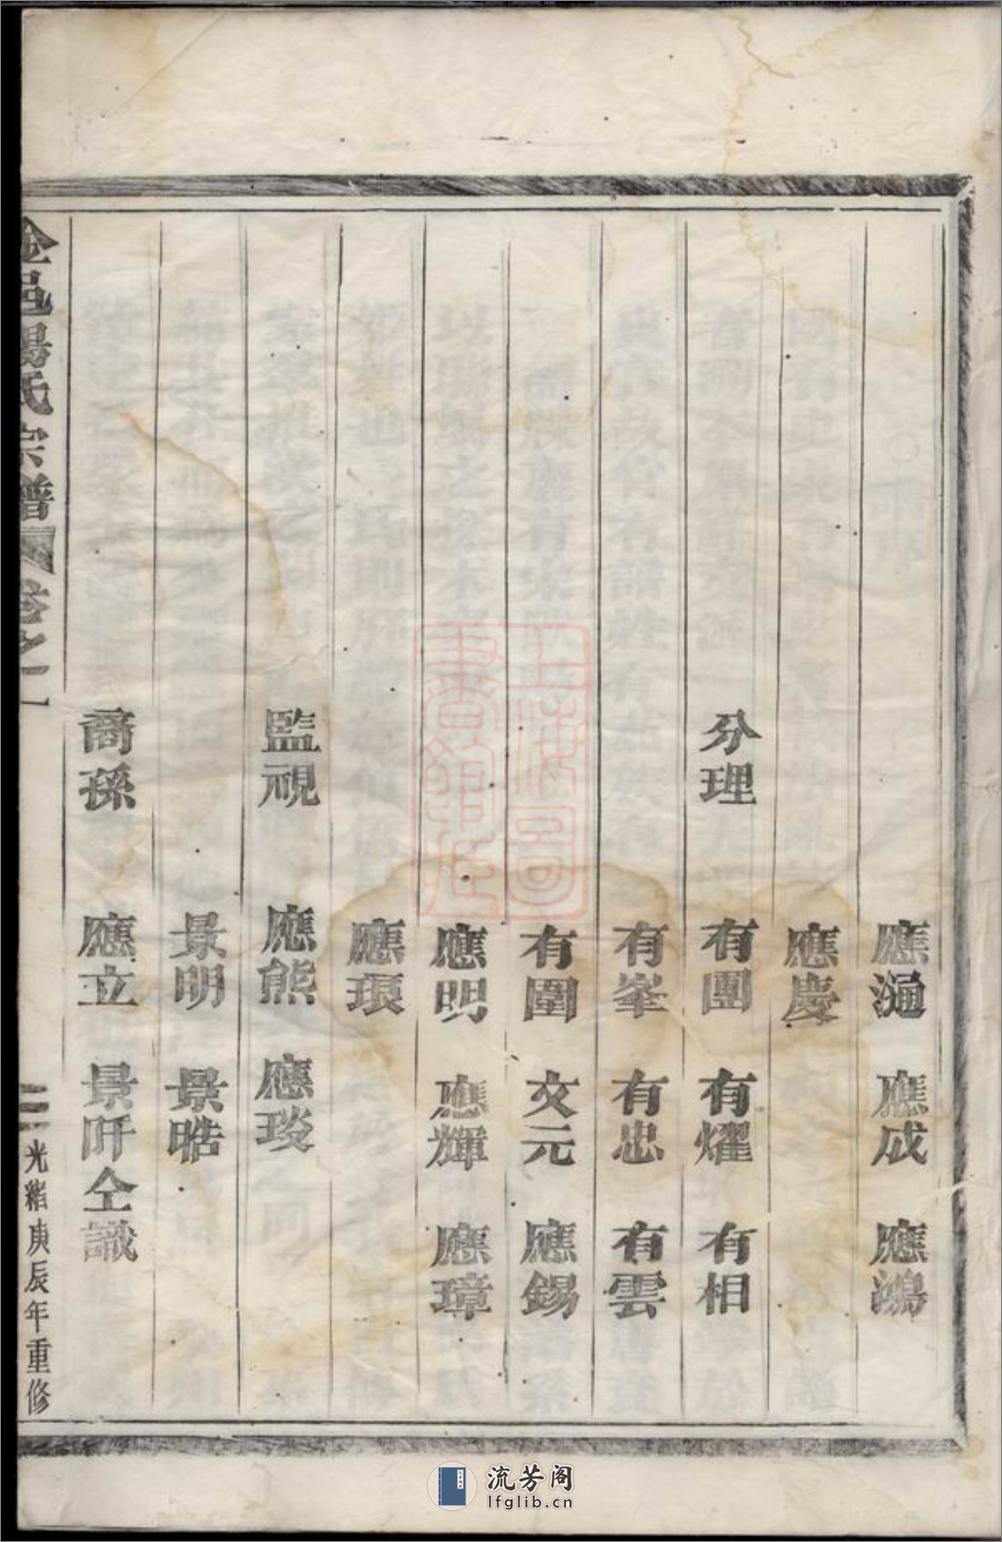 應瀊 應成 應鴻
應慶
分理 有團 有燿 有相
有峯 有忠 有雲
有圍 文元 應錫
應明 應輝 應璋
應琅
監視 應熊 應琰
景明 景晧
裔孫 應立 景旰仝識
金邑楊氏宗譜 卷之一
二 光緒庚辰年重修
上海圖書館藏
流芳阁
lfglib.cn